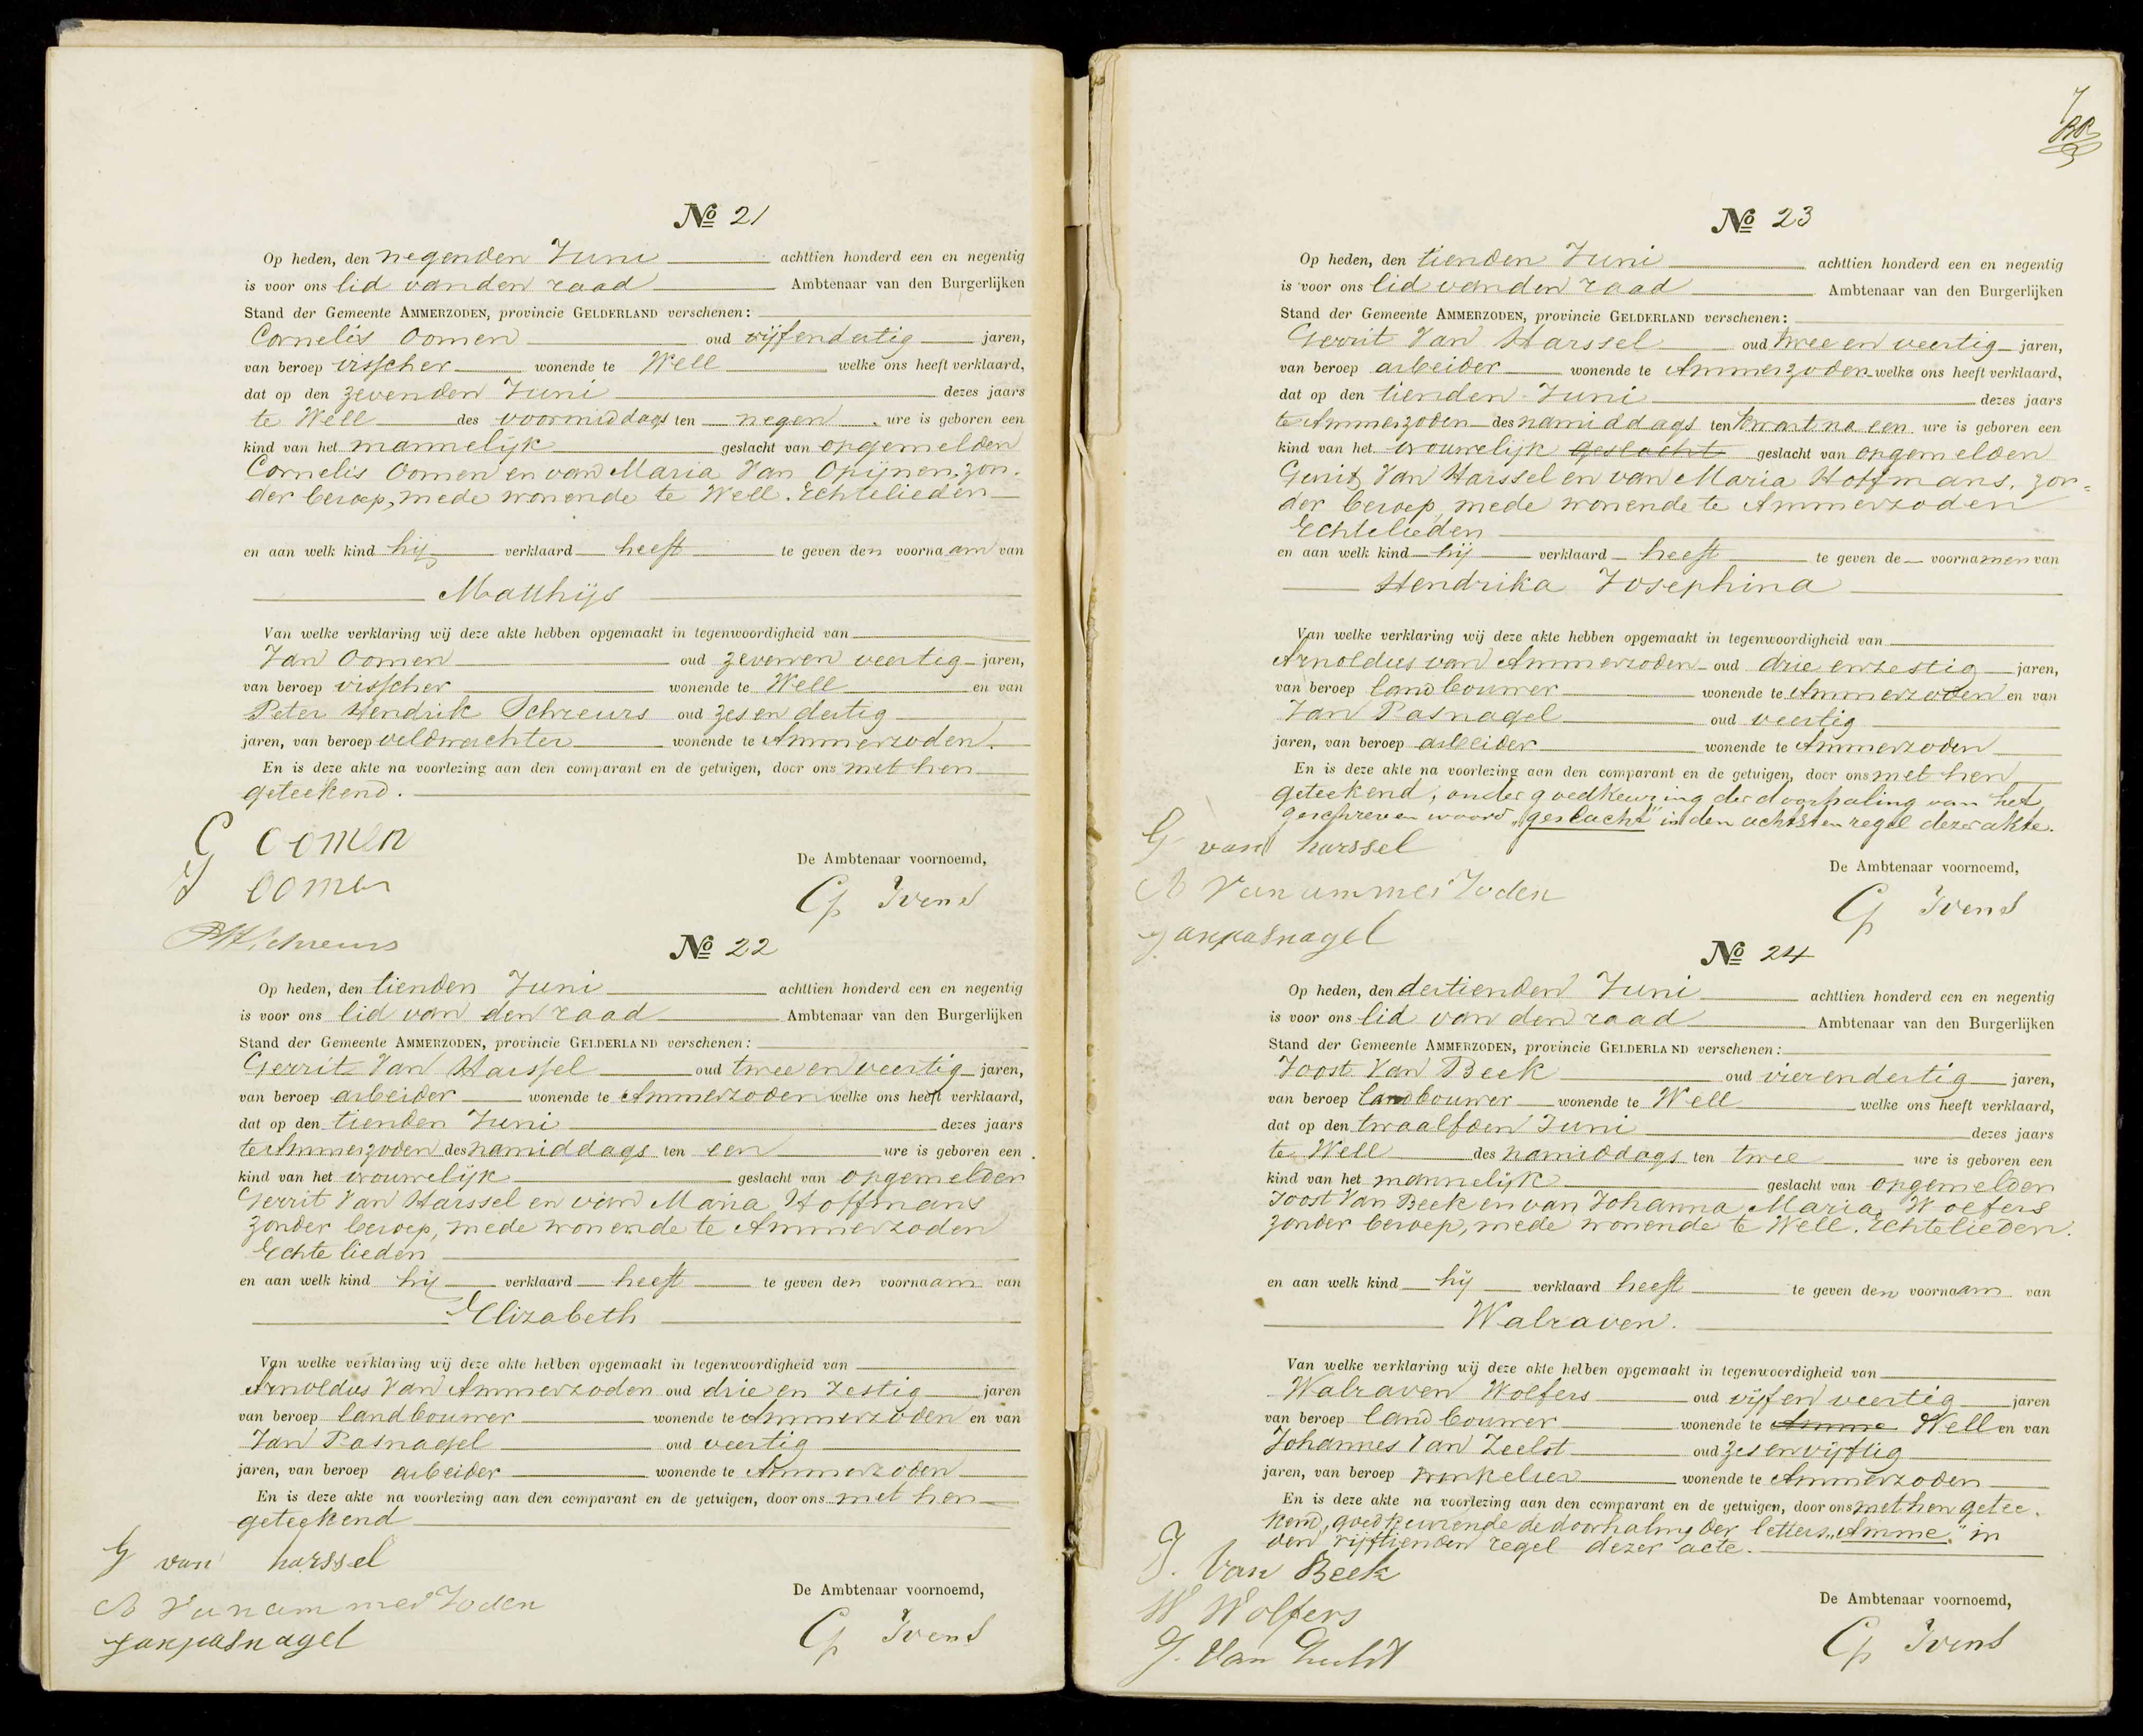 № 21
Op heden, den negenden Juni achttien honderd een en negentig
is voor ons lid van den raad Ambtenaar van den Burgerlijken
Stand der Gemeente AMMERZODEN, provincie GELDERLAND verschenen:
Cornelis Oomen oud vijfendertig jaren,
van beroep visscher wonende te Well welke ons heeft verklaard,
dat op den zevenden Juni dezes jaars
te Well des voormiddags ten negen ure is geboren een
kind van het mannelijk geslacht van opgemelden
Cornelis Oomen en van Maria Van Opijnen, zon-
der beroep, mede wonende te Well. Echtelieden
en aan welk kind hij verklaard heeft te geven den voornaam van
Matthijs
Van welke verklaring wij deze akte hebben opgemaakt in tegenwoordigheid van
Jan Oomen oud zevenen veertig jaren,
van beroep visscher wonende te Well en van
Peter Hendrik Schreurs oud zes en dertig
jaren, van beroep veldwachter wonende te Ammerzoden.
En is deze akte na voorlezing aan den comparant en de getuigen, door ons met hen
geteekend.
C oomen
J oomen
De Ambtenaar voornoemd,
PHSchreurs
№ 22
Op heden, den tienden Juni achttien honderd een en negentig
is voor ons lid van den raad Ambtenaar van den Burgerlijken
Stand der Gemeente AMMERZODEN, provincie GELDERLAND verschenen:
Gerrit Van Harssel oud twee en veertig jaren,
van beroep arbeider wonende te Ammerzoden welke ons heeft verklaard,
dat op den tienden Juni dezes jaars
te Ammerzoden des namiddags ten een ure is geboren een
kind van het vrouwelijk geslacht van opgemelden
Gerrit Van Harssel en van Maria Hoffmans
zonder beroep, mede wonende te Ammerzoden
Echtelieden
en aan welk kind hij verklaard heeft te geven den voornaam van
Elizabeth
Van welke verklaring wij deze akte hebben opgemaakt in tegenwoordigheid van
Arnoldus Van Ammerzoden oud drie en zestig jaren
van beroep landbouwer wonende te Ammerzoden en van
Jan Pasnagel oud veertig
jaren, van beroep arbeider wonende te Ammerzoden
En is deze akte na voorlezing aan den comparant en de getuigen, door ons met hen
geteekend
G van harssel
A Van ammerzoden
janpasnagel
De Ambtenaar voornoemd,
Ivens
7
№ 23
Op heden, den tienden Juni achttien honderd een en negentig
is voor ons lid van den raad Ambtenaar van den Burgerlijken
Stand der Gemeente AMMERZODEN, provincie GELDERLAND verschenen:
Gerrit Van Harssel oud twee en veertig jaren,
van beroep arbeider wonende te Ammerzoden welke ons heeft verklaard,
dat op den tienden Juni dezes jaars
te Ammerzoden des namiddags ten kwart na een ure is geboren een
kind van het vrouwelijk geslacht geslacht van opgemelden
Gerrit Van Harssel en van Maria Hoffmans, zon-
der beroep, mede wonende te Ammerzoden
Echtelieden
en aan welk kind hij verklaard heeft te geven de voornamen van
Hendrika Josephina
Van welke verklaring wij deze akte hebben opgemaakt in tegenwoordigheid van
Arnoldus van Ammerzoden oud drie en zestig jaren,
van beroep landbouwer wonende te Ammerzoden en van
Jan Pasnagel oud veertig
jaren, van beroep arbeider wonende te Ammerzoden
En is deze akte na voorlezing aan den comparant en de getuigen, door ons met hen
geteekend, onder goedkeuring der doorhaling van het
geschreven woord „geslacht" in den achtsten regel dezer akte.
G van harssel
A Van ammerzoden
janpasnagel
De Ambtenaar voornoemd,
Ivens
№ 24
Op heden, den dertienden Juni achttien honderd een en negentig
is voor ons lid van den raad Ambtenaar van den Burgerlijken
Stand der Gemeente AMMERZODEN, provincie GELDERLAND verschenen:
Joost Van Beek oud vierendertig jaren,
van beroep landbouwer wonende te Well welke ons heeft verklaard,
dat op den twaalfden Juni dezes jaars
te Well des namiddags ten twee ure is geboren een
kind van het mannelijk geslacht van opgemelden
Joost Van Beek en van Johanna Maria Wolfers
zonder beroep, mede wonende te Well. Echtelieden.
en aan welk kind hij verklaard heeft te geven den voornaam van
Walraven.
Van welke verklaring wij deze akte hebben opgemaakt in tegenwoordigheid van
Walraven Wolfers oud vijf en veertig jaren
van beroep landbouwer wonende te Amme Well en van
Johannes Van Zeelst oud zes en vijftig
jaren, van beroep winkelier wonende te Ammerzoden
En is deze akte na voorlezing aan den comparant en de getuigen, door ons met hen getee-
kend, goedkeurende de doorhaling der letters „Amme" in
den vijftienden regel dezer acte.
J. Van Beek
W Wolfers
J. Van Zeelst
De Ambtenaar voornoemd,
Ivens